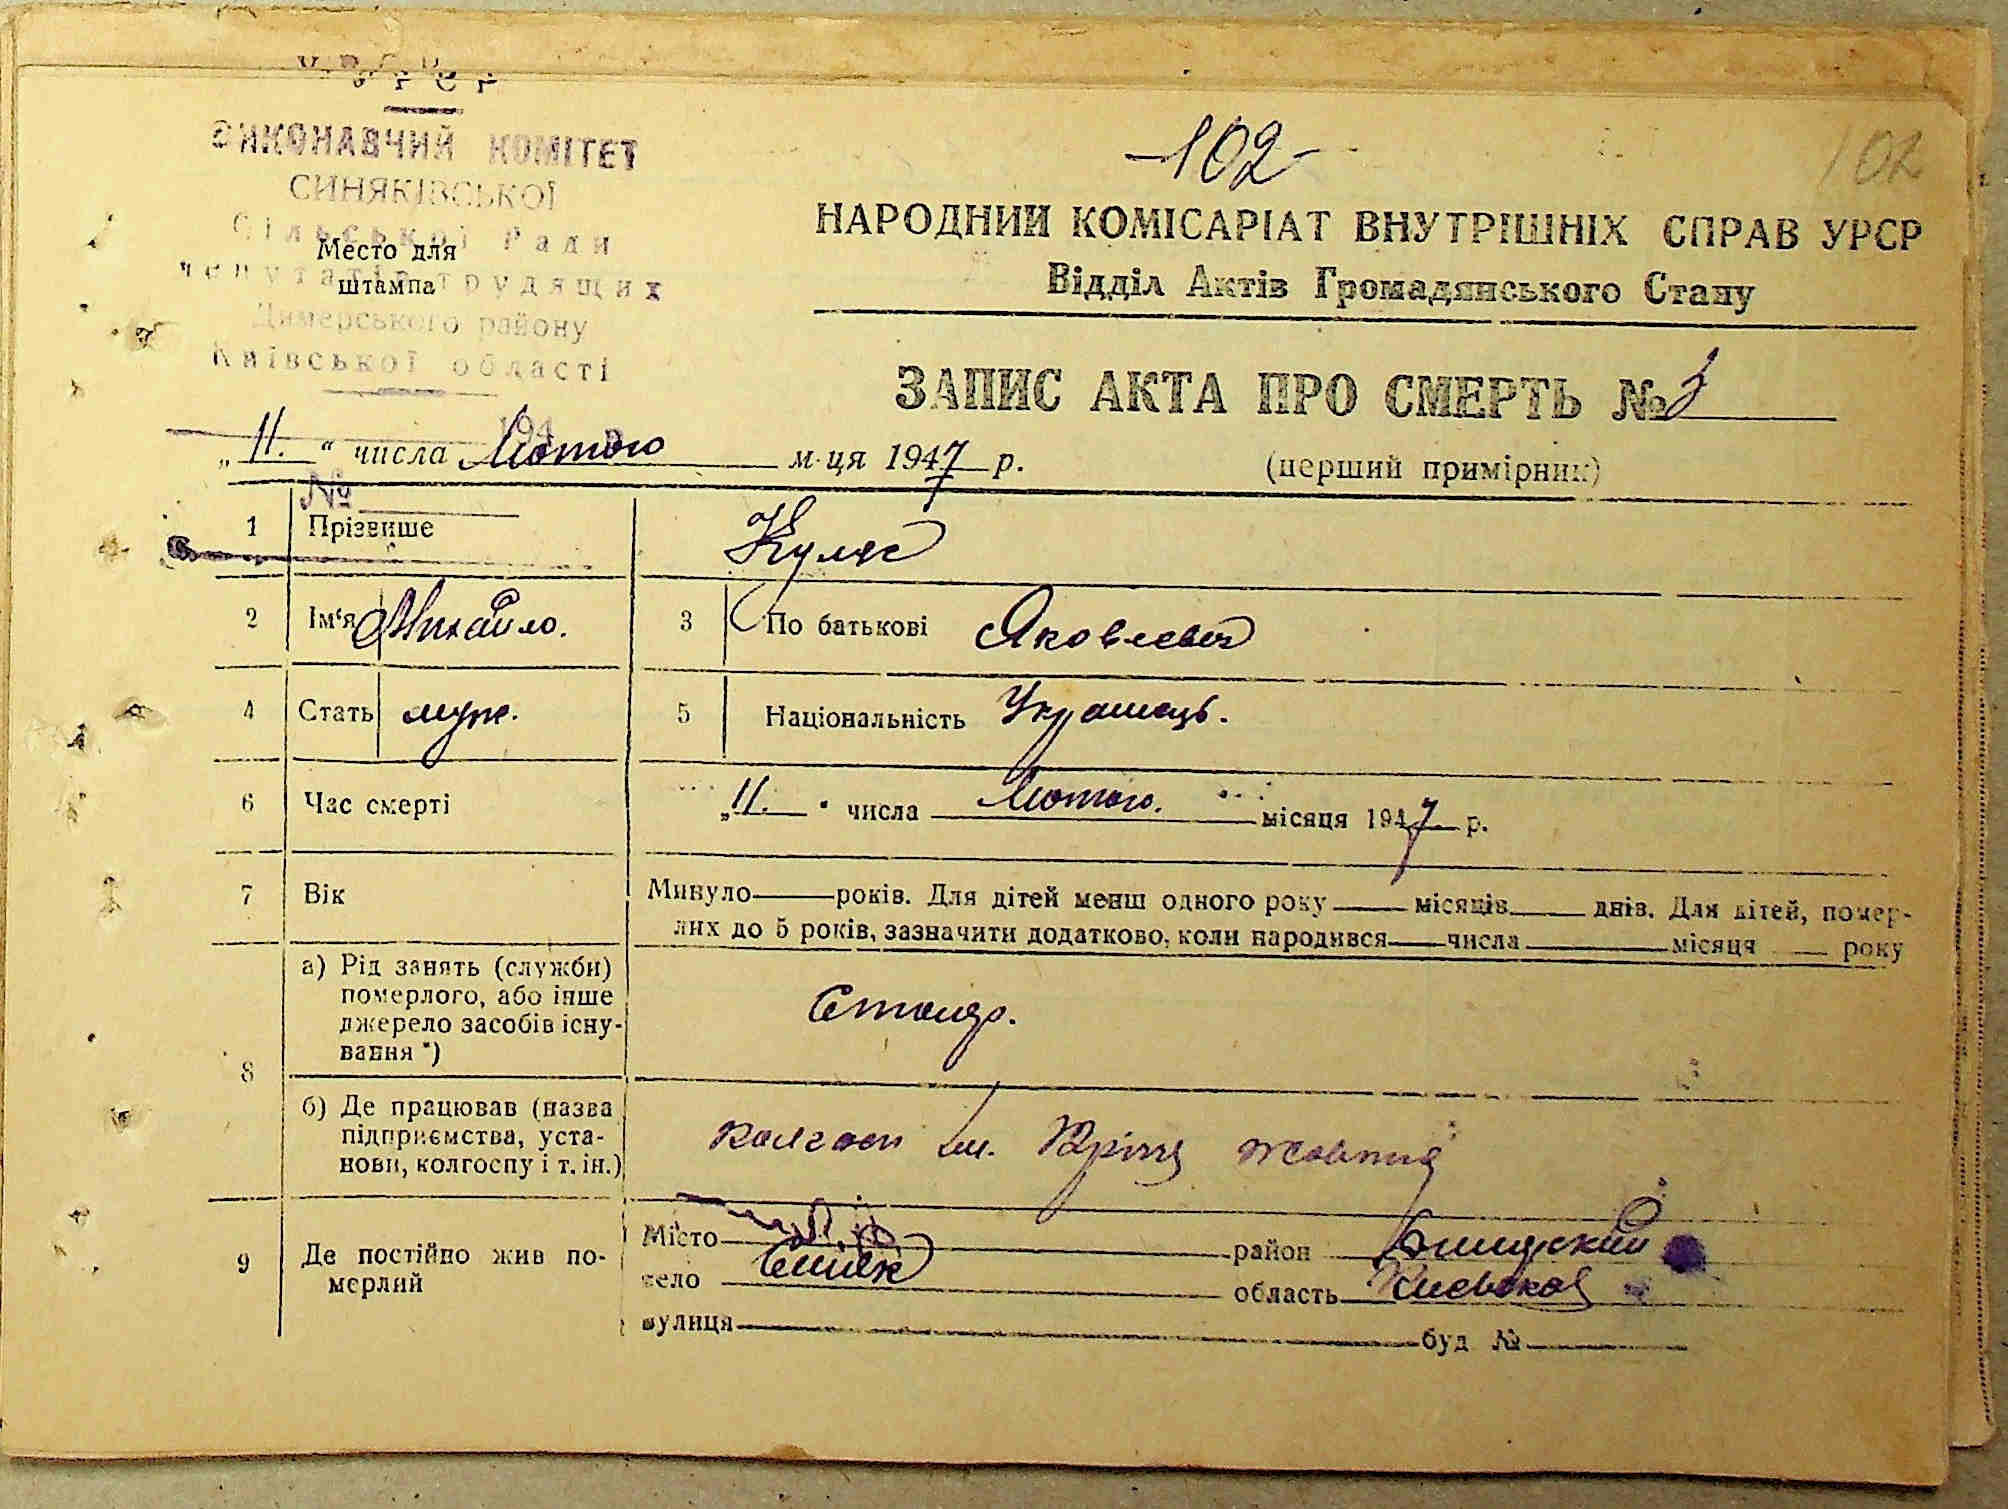 УРСР
ВИКОНАВЧИЙ КОМІТЕТ
СИНЯКІВСЬКОЇ
Сільської Ради
депутатів трудящих
Димерського району
Київської області
Место для
штампа
194 р.
№
-102-
102
НАРОДНИЙ КОМІСАРІАТ ВНУТРІШНІХ СПРАВ УРСР
Відділ Актів Громадянського Стану
ЗАПИС АКТА ПРО СМЕРТЬ №
„11.“ числа Лютого м-ця 1947 р. (перший примірник)
1 Прізвише Куляс
2 Ім‘я Михайло. 3 По батькові Яковлевич
4 Стать муж. 5 Національність Українець.
6 Час смерті „11.“ числа Лютого. місяця 1947 р.
7 Вік Минуло ___ років. Для дітей менш одного року ___ місяців ___ днів. Для дітей, помер-
лих до 5 років, зазначити додатково, коли народився ___ числа ___ місяця ___ року
8 а) Рід занять (служби)
померлого, або інше
джерело засобів існу-
вання *)
Столяр.
б) Де працював (назва
підприємства, уста-
нови, колгоспу і т. ін.)
колгосп ім. Жовтня
9 Де постійно жив по-
мерлий
Місто район
село Синяк область Киевска
вулиця буд №